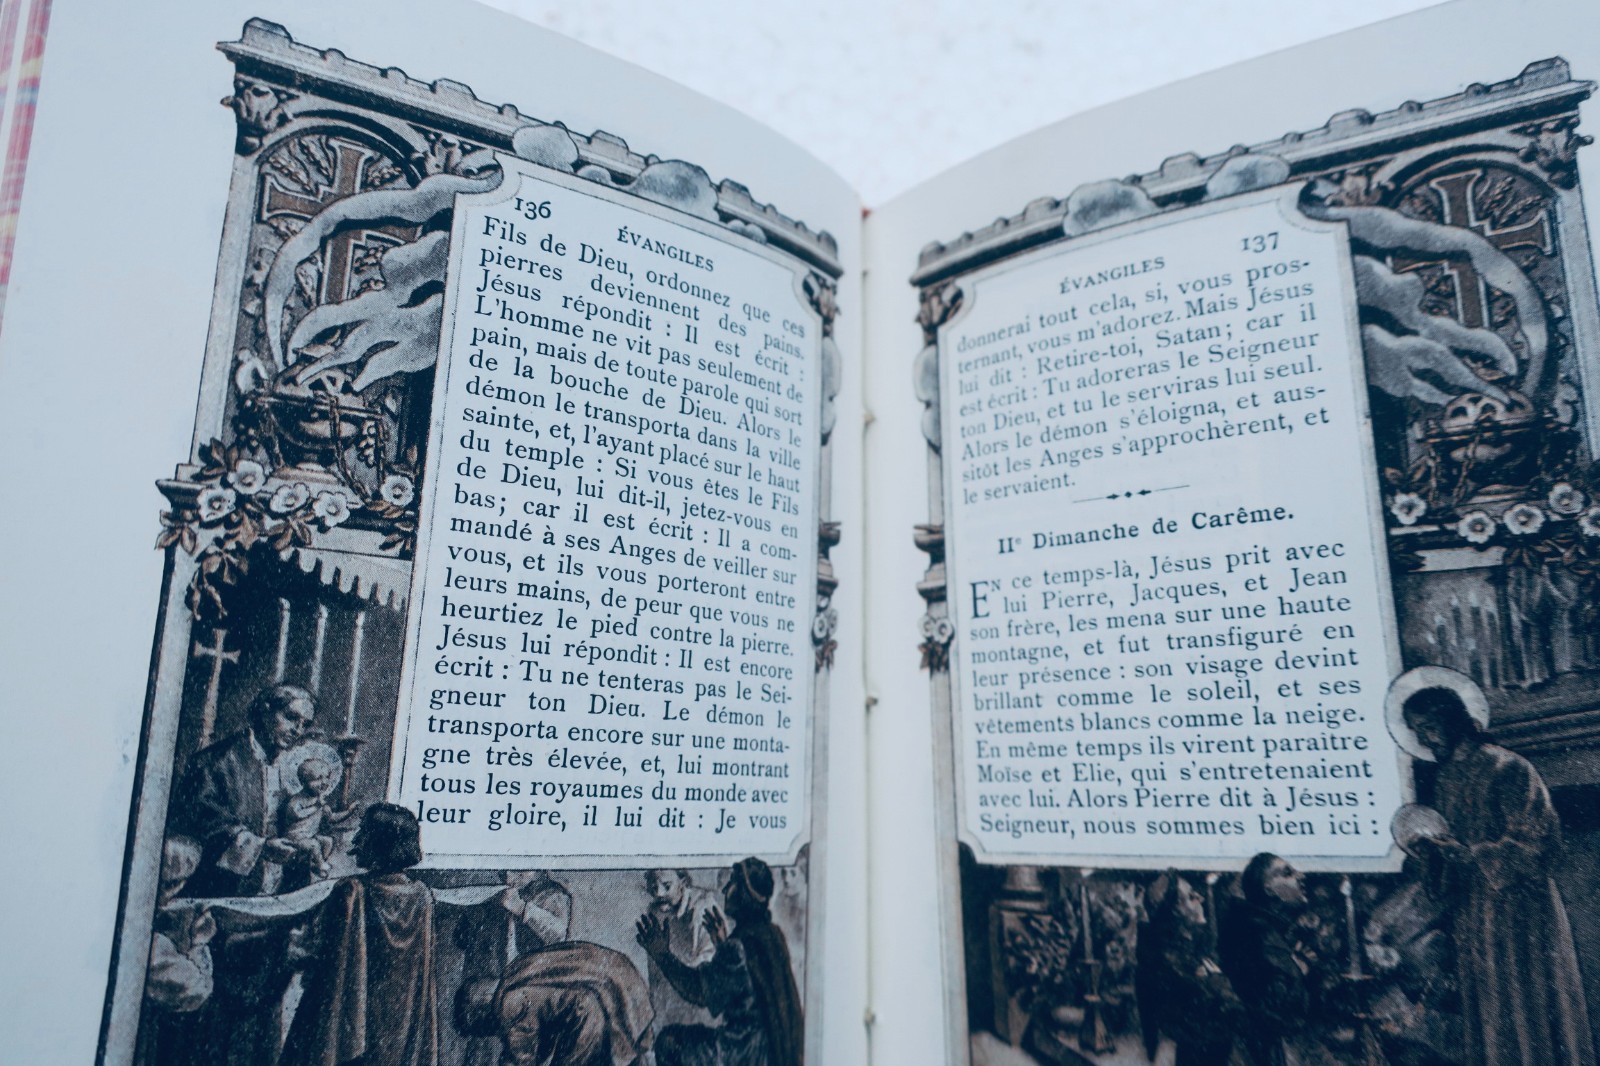 136
ÉVANGILES
Fils de Dieu, ordonnez que ces
pierres deviennent des pains.
Jésus répondit : Il est écrit :
L'homme ne vit pas seulement de
pain, mais de toute parole qui sort
de la bouche de Dieu. Alors le
démon le transporta dans la ville
sainte, et, l'ayant placé sur le haut
du temple : Si vous êtes le Fils
de Dieu, lui dit-il, jetez-vous en
bas; car il est écrit : Il a com-
mandé à ses Anges de veiller sur
vous, et ils vous porteront entre
leurs mains, de peur que vous ne
heurtiez le pied contre la pierre.
Jésus lui répondit : Il est encore
écrit : Tu ne tenteras pas le Sei-
gneur ton Dieu. Le démon le
transporta encore sur une monta-
gne très élevée, et, lui montrant
tous les royaumes du monde avec
leur gloire, il lui dit : Je vous
ÉVANGILES
137
donnerai tout cela, si, vous pros-
ternant, vous m'adorez. Mais Jésus
lui dit : Retire-toi, Satan; car il
est écrit : Tu adoreras le Seigneur
ton Dieu, et tu le serviras lui seul.
Alors le démon s'éloigna, et aus-
sitôt les Anges s'approchèrent, et
le servaient.
IIe Dimanche de Carême.
EN ce temps-là, Jésus prit avec
lui Pierre, Jacques, et Jean
son frère, les mena sur une haute
montagne, et fut transfiguré en
leur présence : son visage devint
brillant comme le soleil, et ses
vêtements blancs comme la neige.
En même temps ils virent paraître
Moïse et Elie, qui s'entretenaient
avec lui. Alors Pierre dit à Jésus :
Seigneur, nous sommes bien ici :